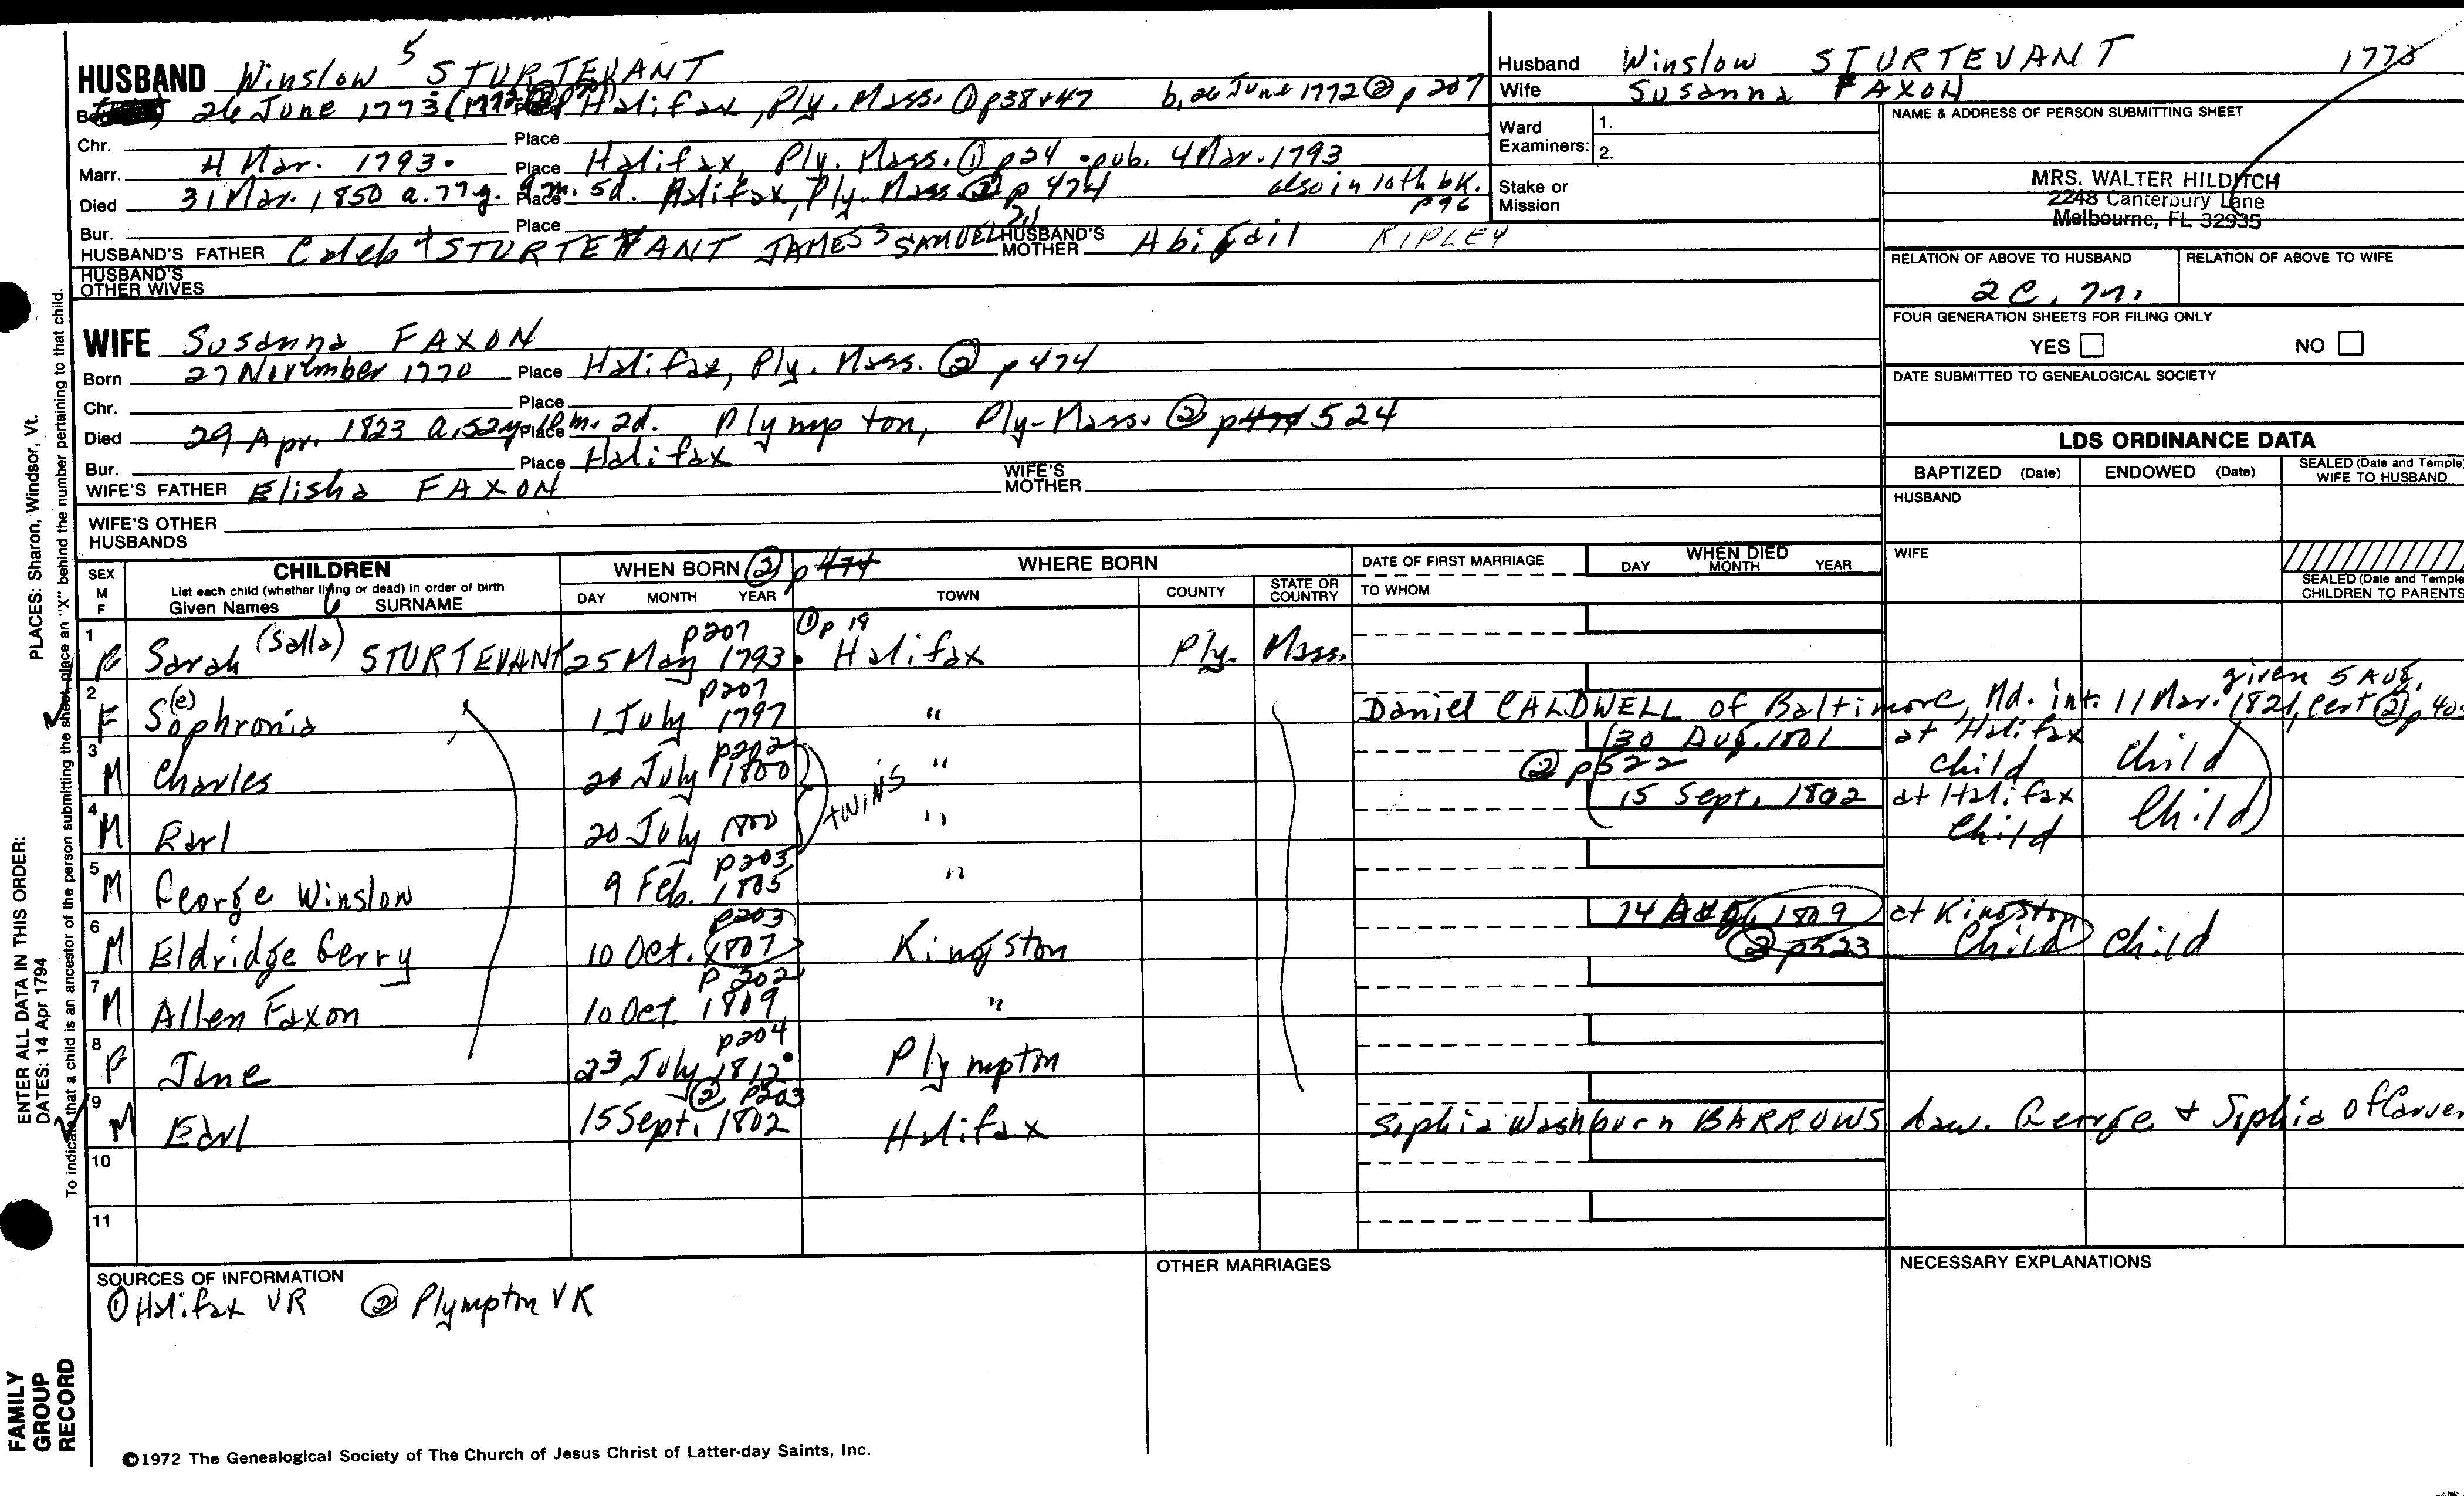 HUSBAND Winslow 5 STURTEVANT
26 June 1773 (1772 Halifax, Ply. Mass. ① p38+47 b. 26 June 1772 ② p 207
Chr. Place
Marr. 4 Mar. 1793. Place Halifax, Ply. Mass. ① p24 • pub. 4 Mar. 1793
Died 31 Mar. 1850 a. 77 y. 9 m. 5d. Place Halifax, Ply. Mass. ② p 474 also in 10th bk. p96
Bur. Place
HUSBAND'S FATHER Caleb 4 STURTEVANT JAMES 3 SAMUEL HUSBAND'S MOTHER Abigail RIPLEY
HUSBAND'S OTHER WIVES
Husband Winslow STURTEVANT 1773
Wife Susanna FAXON
Ward Examiners: 1.
2.
Stake or Mission
NAME & ADDRESS OF PERSON SUBMITTING SHEET
MRS. WALTER HILDITCH
2248 Canterbury Lane
Melbourne, FL 32935
RELATION OF ABOVE TO HUSBAND RELATION OF ABOVE TO WIFE
2C. m.
FOUR GENERATION SHEETS FOR FILING ONLY
YES NO
DATE SUBMITTED TO GENEALOGICAL SOCIETY
WIFE Susanna FAXON
Born 27 November 1770 Place Halifax, Ply. Mass. ② p474
Chr. Place
Died 29 Apr. 1823 a. 52y m. 2d. Place Plympton, Ply-Mass. ② p474 524
Bur. Place Halifax
WIFE'S FATHER Elisha FAXON WIFE'S MOTHER
WIFE'S OTHER HUSBANDS
LDS ORDINANCE DATA
BAPTIZED (Date) ENDOWED (Date) SEALED (Date and Temple) WIFE TO HUSBAND
HUSBAND
WIFE
SEALED (Date and Temple) CHILDREN TO PARENTS
SEX M F CHILDREN WHEN BORN ② p474 WHERE BORN DATE OF FIRST MARRIAGE WHEN DIED
List each child (whether living or dead) in order of birth
Given Names 6 SURNAME DAY MONTH YEAR TOWN COUNTY STATE OR COUNTRY TO WHOM DAY MONTH YEAR
p207 ① p 19
1 F Sarah (Salla) STURTEVANT 25 May 1793 • Halifax Ply. Mass.
p207 given 5 Aug.
2 F S(e)ophronia 1 July 1797 " Daniel CALDWELL of Baltimore, Md. int. 11 Mar. 1821, cert ② p 405
p202 30 Aug. 1801 at Halifax
3 M Charles 20 July 1800 twins " ② p522 child child
15 Sept. 1802 at Halifax
4 M Earl 20 July 1800 " Child Child
p203
5 M George Winslow 9 Feb. 1805 "
p203 14 Aug. 1809 at Kingston
6 M Eldridge Gerry 10 Oct. 1807 Kingston ② p523 Child Child
p 202
7 M Allen Faxon 10 Oct. 1809 "
p204
8 F Jane 23 July 1812 • Plympton
② p203
9 M Earl 15 Sept. 1802 Halifax Sophia Washburn BARROWS daw. George & Sophia of Carver
10
11
SOURCES OF INFORMATION OTHER MARRIAGES NECESSARY EXPLANATIONS
① Halifax VR ② Plympton VR
©1972 The Genealogical Society of The Church of Jesus Christ of Latter-day Saints, Inc.
FAMILY GROUP RECORD
ENTER ALL DATA IN THIS ORDER:
DATES: 14 Apr 1794
PLACES: Sharon, Windsor, Vt.
To indicate that a child is an ancestor of the person submitting the sheet, place an "X" behind the number pertaining to that child.